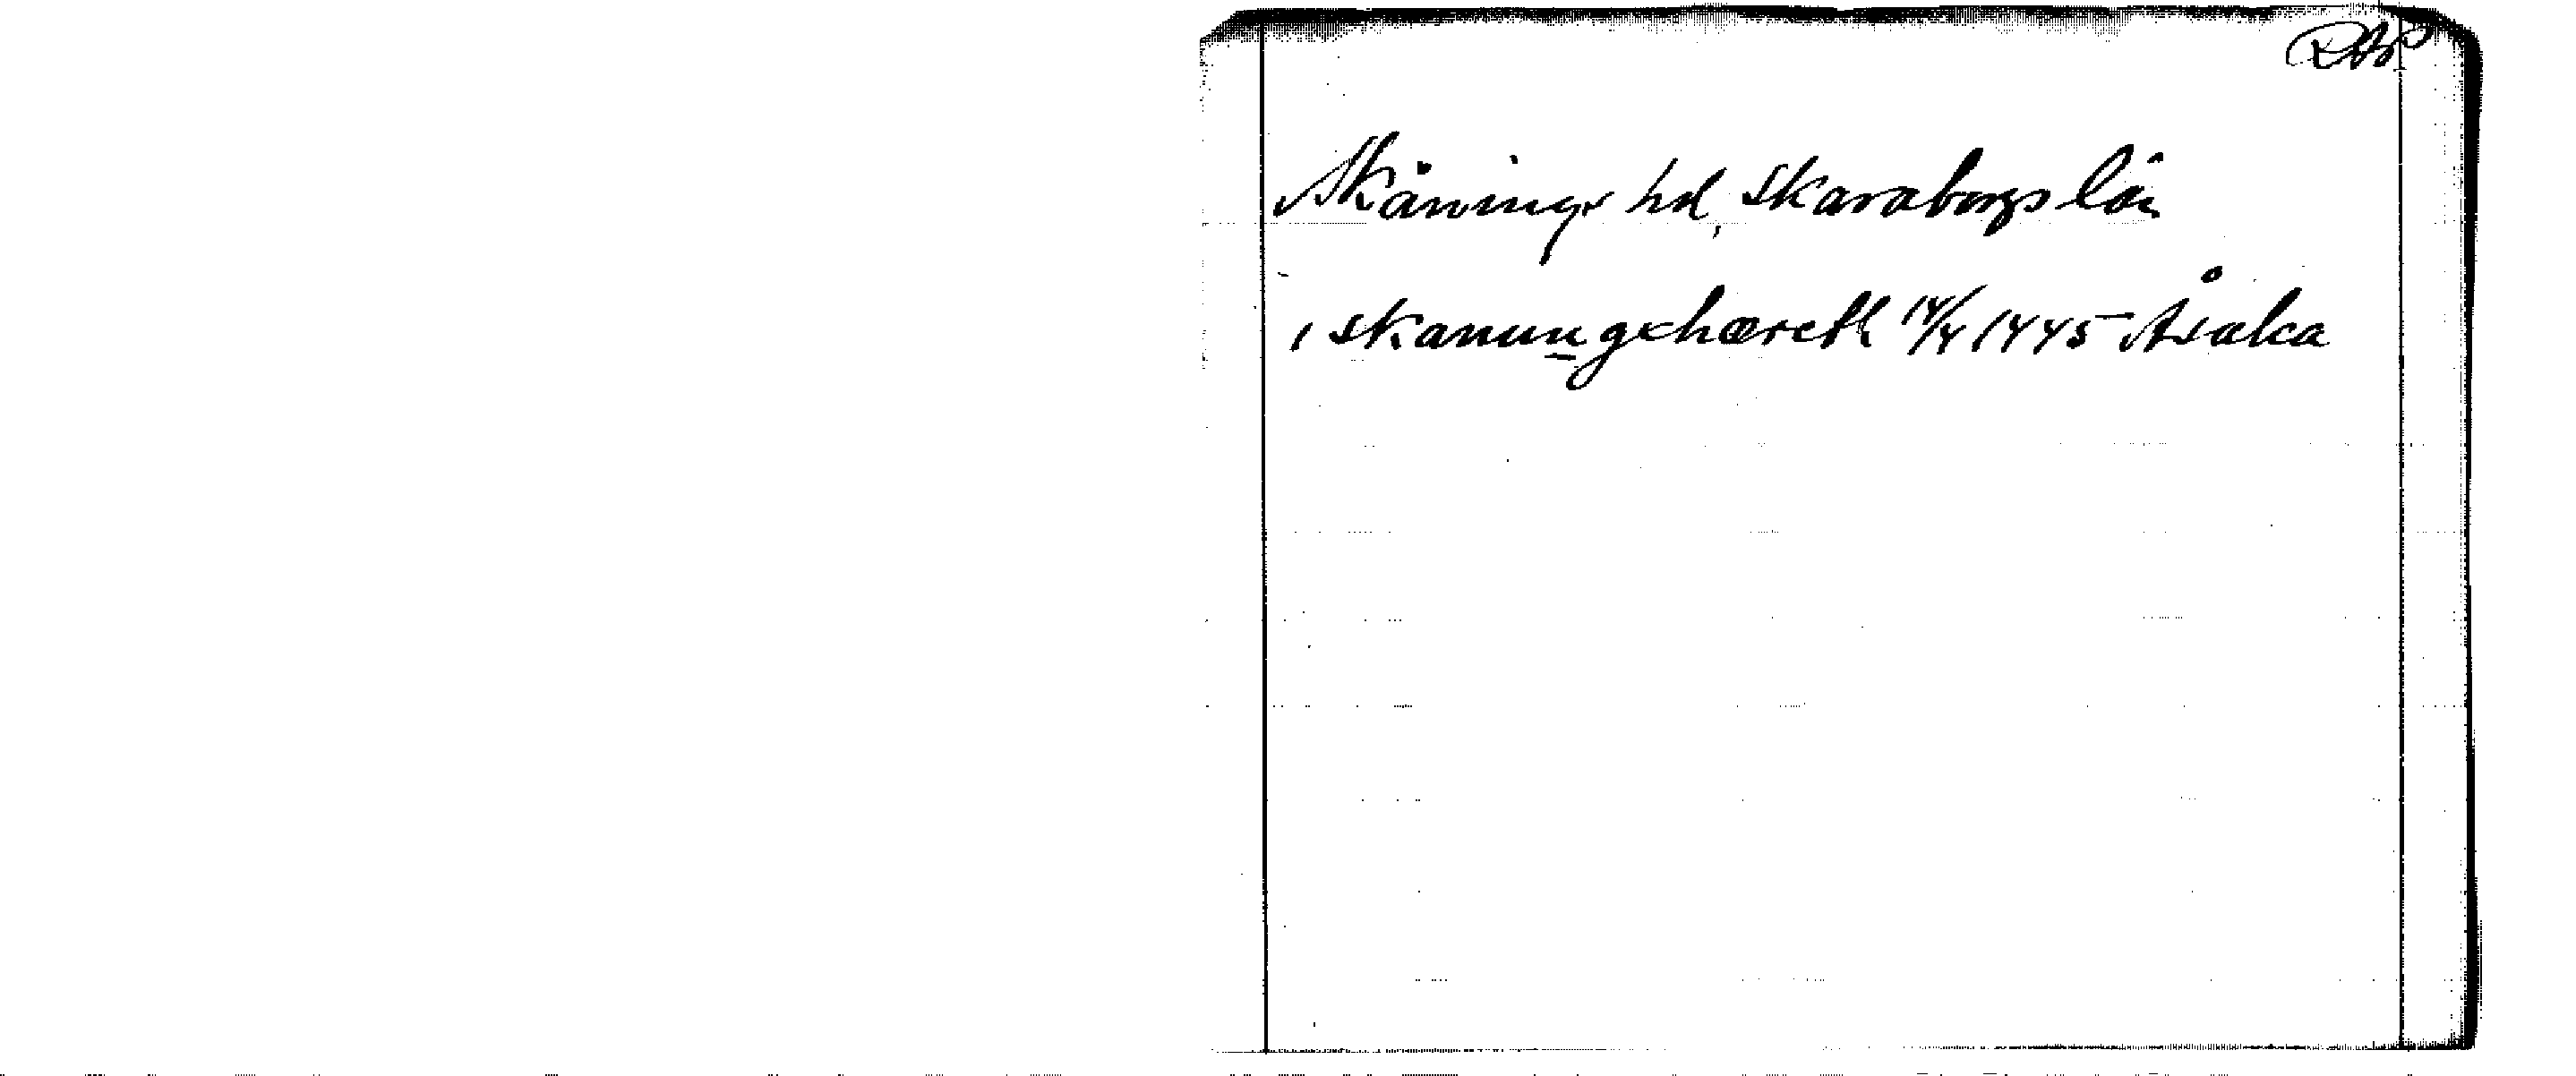 Skånings hd, Skaraborgs län
i skanungxhæreth 14/4 1445 Åsaka